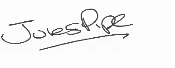 Jules Pipe